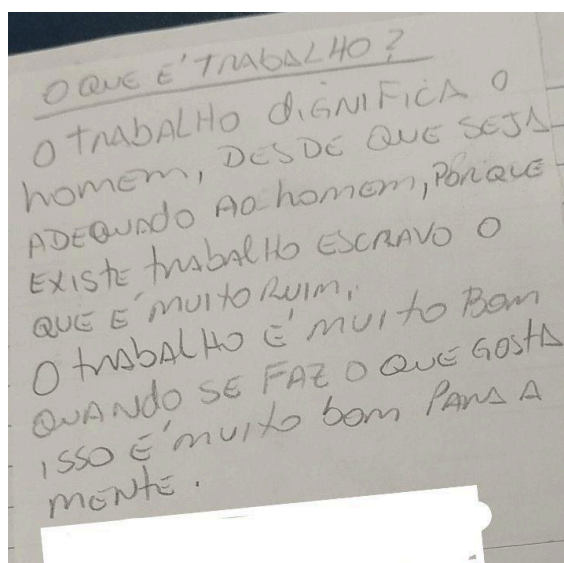 O QUE É TRABALHO?
O TRABALHO DIGNIFICA O
HOMEM, DESDE QUE SEJA
ADEQUADO AO HOMEM, PORQUE
EXISTE TRABALHO ESCRAVO O
QUE É MUITO RUIM.
O TRABALHO É MUITO BOM
QUANDO SE FAZ O QUE GOSTA
ISSO É MUITO BOM PARA A
MENTE.